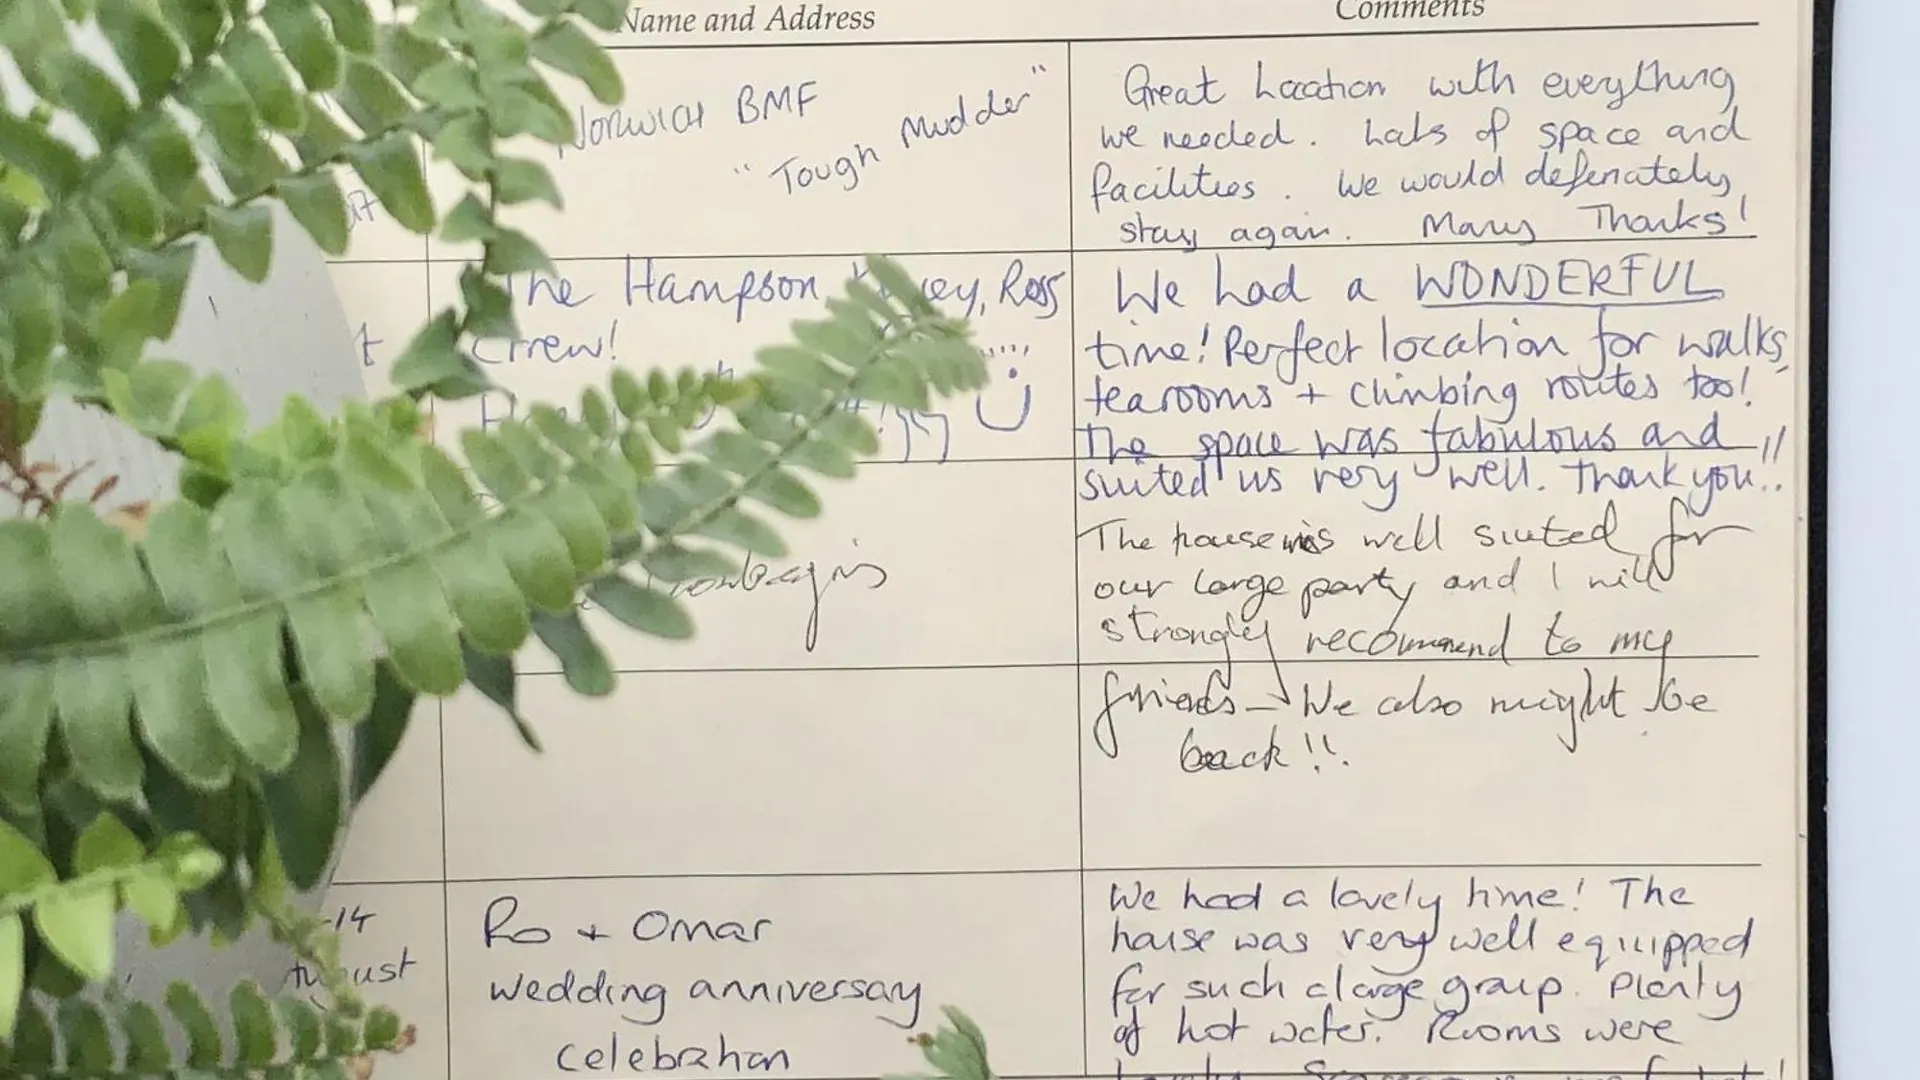 Name and Address
Comments
Norwich BMF
"Tough Mudder"
Great Location with everything
we needed. Lots of space and
facilities. We would definately
stay again. Many Thanks!
The Hampson, Ross
Crrew!
We had a WONDERFUL
time! Perfect location for walks,
tearooms + climbing routes too!
The space was fabulous and
suited us very well. Thank you!!
The house was well suited for
our large party and I will
strongly recommend to my
friends - We also might be
back!!
-14
August
Ro + Omar
wedding anniversary
celebration
We had a lovely time! The
house was very well equipped
for such a large group. Plenty
of hot water. Rooms were